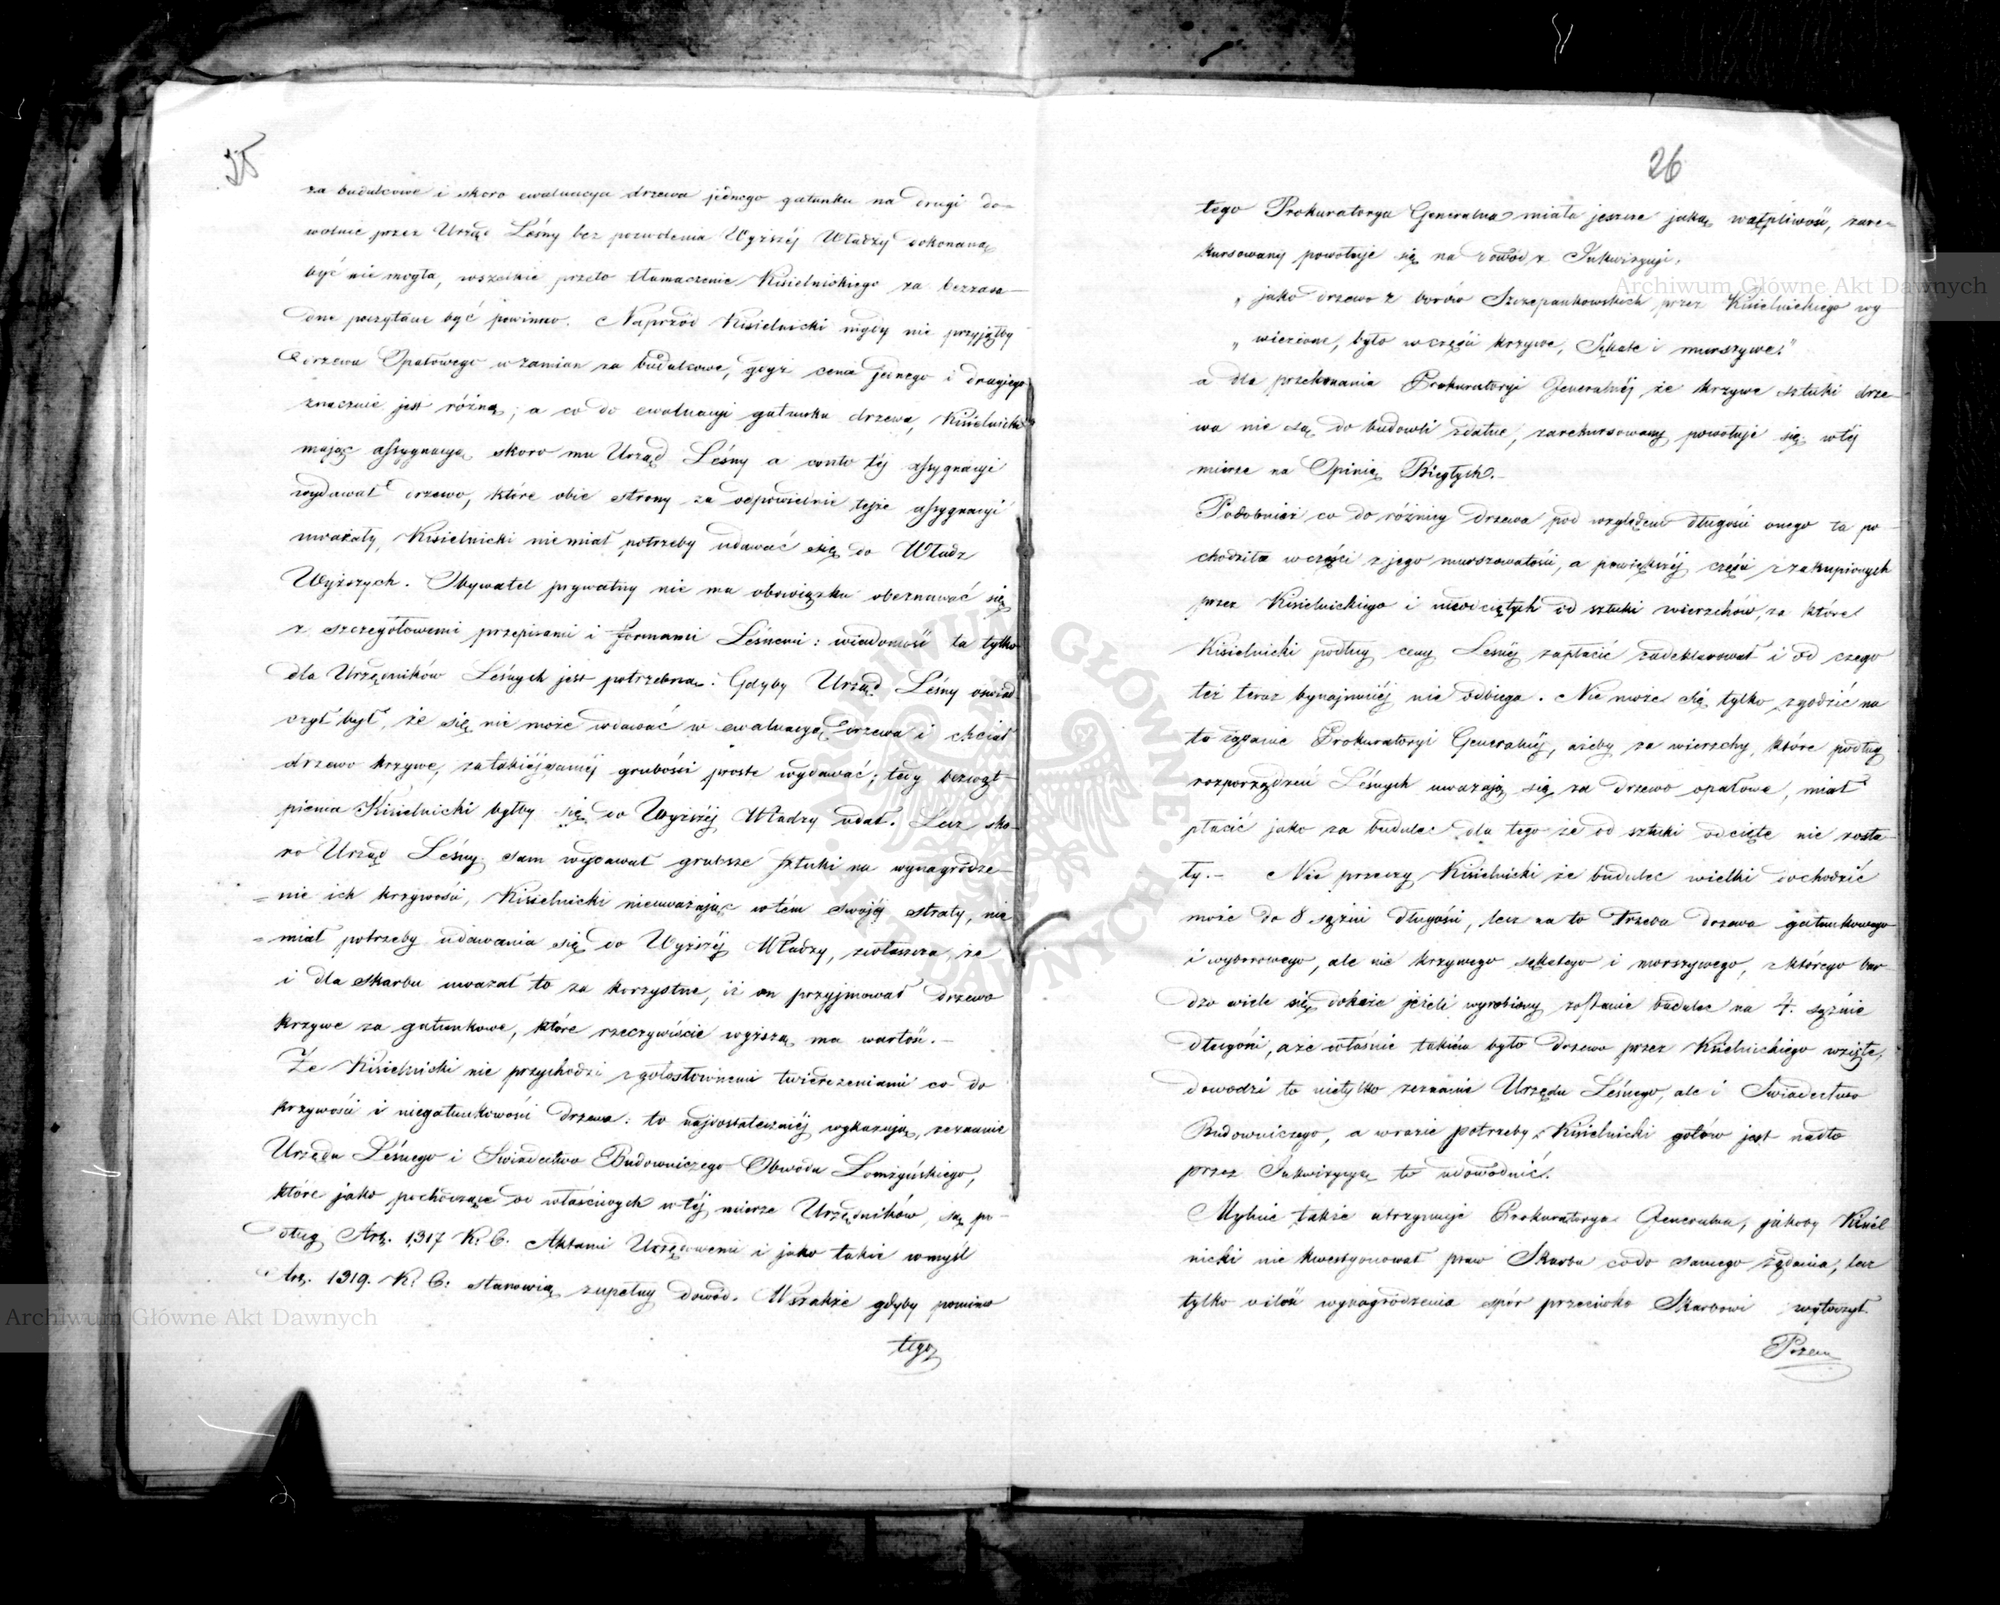 25
za budulcowe i skoro ewaluacya drzewa jednego gatunku na drugi do=
wolnie przez Urząd Leśny bez pozwolenia Wyższéj Władzy dokonaną
być nie mogła, wszelkie przeto tłumaczenie Kisielnickiego za bezzasa=
dne poczytane być powinno. Naprzód Kisielnicki nigdy nie przyjąłby
drzewa Opałowego w zamian za budulcowe, gdyż cena jednego i drugiego
znacznie jest różną; a co do ewaluacyi gatunku drzewa, Kisielnicki
mając assygnacyą skoro mu Urząd Leśny a conto téj assygnacyi
wydawał drzewo, które obie strony za odpowiednie tejże assygnacyi
uważały, Kisielnicki nie miał potrzeby udawać się do Władz
Wyższych. Obywatel prywatny nie ma obowiązku obeznawać się
z szczegółowemi przepisami i formami Leśnemi: wiadomość ta tylko
dla Urzędników Leśnych jest potrzebna. Gdyby Urząd Leśny oświad
czył był, że się nie może wdawać w ewaluacyą drzewa i chciał
drzewo krzywe, za takiejsaméj grubości proste wydawać; tedy bezwąt=
pienia Kisielnicki byłby się do Wyższéj Władzy udał. Lecz sko=
ro Urząd Leśny sam wydawał grubsze sztuki na wynagrodze=
=nie ich krzywości, Kisielnicki nieuważając w tém swojéj straty, nie
=miał potrzeby udawania się do Wyższéj Władzy, zwłaszcza, że
i dla Skarbu uważał to za korzystne, iż on przyjmował drzewo
krzywe za gatunkowe, które rzeczywiście wyższą ma wartość.–
Że Kisielnicki nie przychodzi z gołosłownemi twierdzeniami co do
krzywości i niegatunkowości drzewa: to najdostateczniéj wykazują, zeznanie
Urzędu Leśnego i Świadectwo Budowniczego Obwodu Łomżyńskiego,
które jako pochodzące od właściwych w téj mierze Urzędników, są po=
dług Art. 1317 K. C. Aktami Urzędowemi i jako takie w myśl
Art. 1319. K. C. stanowią zupełny dowód. Wszakże gdyby pomimo
tego
26
tego Prokuratorya Generalna miała jeszcze jaką wątpliwość, zare=
kursowany powołuje się na dowód z Inkwizycyi,
„ jako drzewo z borów Szczepankowskich przez Kisielnickiego wy=
„ wiezione, było w części krzywe, Sękate i murszywe."
a dla przekonania Prokuratoryi Generalnéj że krzywe sztuki drze=
wa nie są do budowli zdatne, zarekursowany powołuje się w téj
mierze na Opinię Biegłych.–
Podobnież co do różnicy drzewa pod względem długości onego ta po=
chodziła w części z jego murszowatości, a powiększéj części z zakupionych
przez Kisielnickiego i nieodciętych od sztuki wierzchów, za które
Kisielnicki podług ceny Leśnéj zapłacić zadeklarował i od czego
też teraz bynajmniéj nie odbiega. Nie może się tylko zgodzić na
to żądanie Prokuratoryi Generalnéj, ażeby za wierzchy, które podług
rozporządzeń Leśnych uważają się za drzewo opałowe, miał
płacić jako za budulec dla tego że od sztuki odcięte nie zosta=
ły.– Nie przeczy Kisielnicki że budulec wielki dochodzić
może do 8 sążni długości, lecz na to trzeba drzewa gatunkowego
i wyborowego, ale nie krzywego sękatego i morszywego, z którego bar=
dzo wiele się dokaże jeżeli wyrobiony zostanie budulec na 4. sążnie
długości, a że właśnie takiém było drzewo przez Kisielnickiego wzięte,
dowodzi to nietylko zeznanie Urzędu Leśnego, ale i Świadectwo
Budowniczego, a w razie potrzeby Kisielnicki gotów jest nadto
przez Inkwizycyą to udowodnić.
Mylnie także utrzymuje Prokuratorya Generalna, jakoby Kisiel
nicki nie kwestyonował praw Skarbu co do samego żądania, lecz
tylko o ilość wynagrodzenia spór przeciwko Skarbowi wytoczył.
Przeci
Archiwum Główne Akt Dawnych
Archiwum Główne Akt Dawnych
ARCHIWUM GŁÓWNE AKT DAWNYCH